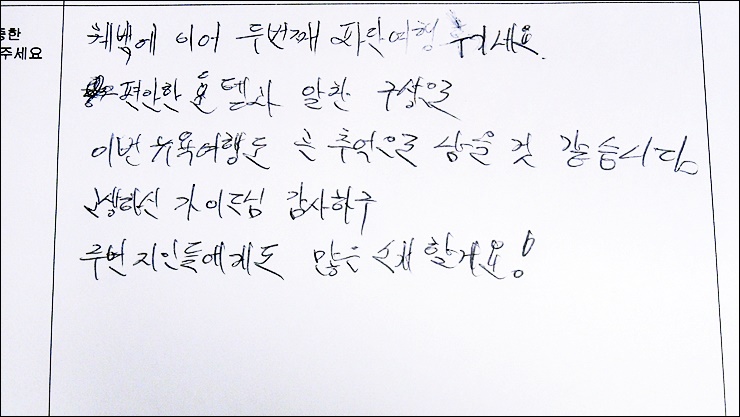 주세요
퀘벡에 이어 두번째 파란여행
편안한 호텔과 알찬 구성으로
이번 뉴욕여행도 큰 추억으로 남을 것 같습니다.
고생하신 가이드님 감사하구
주변 지인들에게도 많은 소개 할게요!